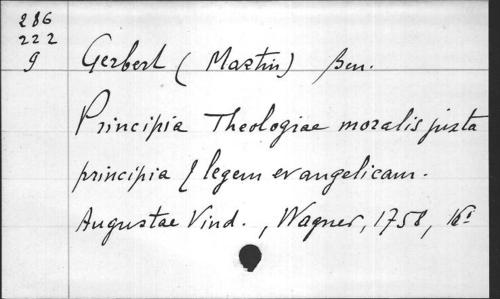 286
222
g
Gerbert (Martin) Ben.
Principia Theologiae moralis juxta
principia & legem evangelicam.
Augustae Vind., Wagner, 1758, 16º